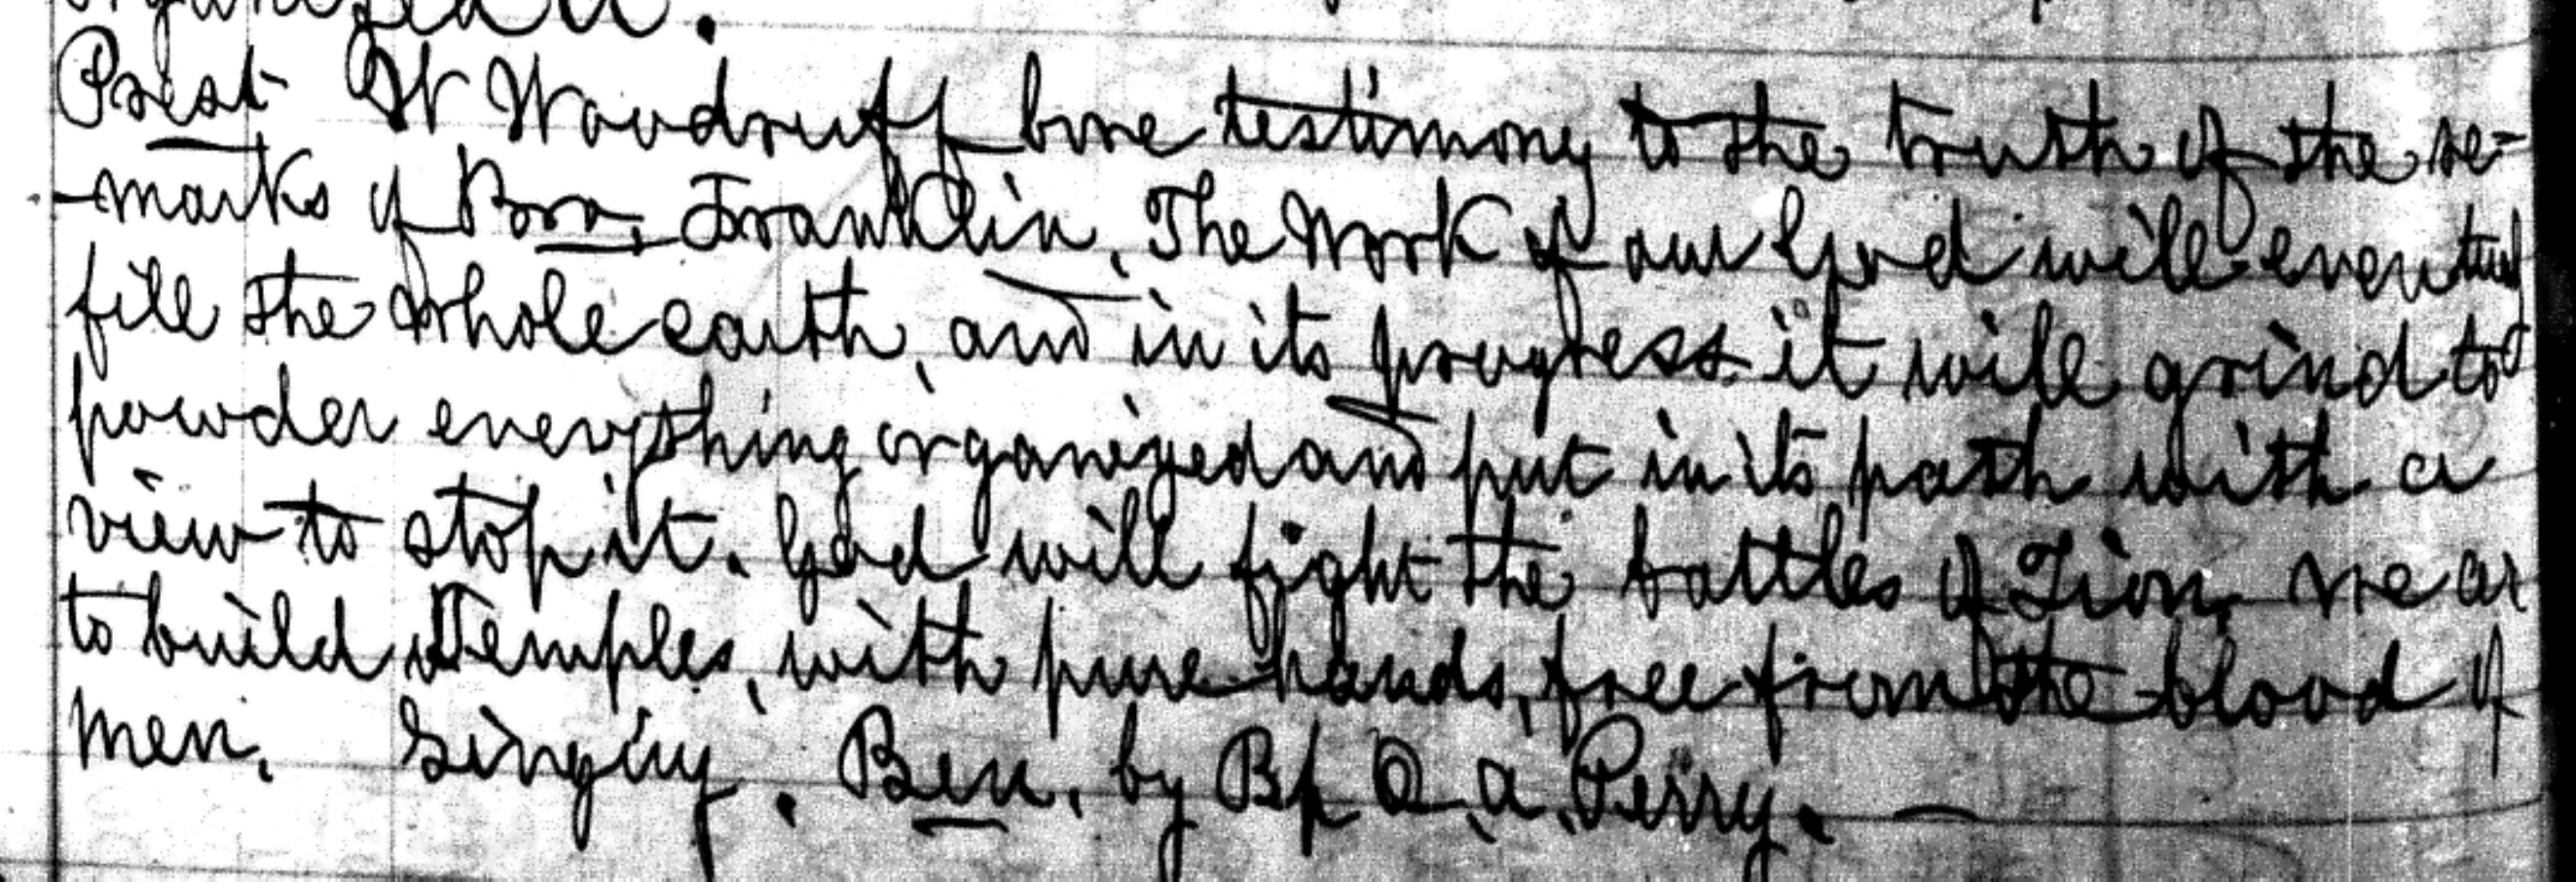 Prest W Woodruff bore testimony to the truth of the re-
-marks of Bro. Franklin. The Work of our God will eventual
fill the whole earth, and in its progress it will grind to
powder everything organized and put in its path with a
view to stop it. God will fight the battles of Zion, we ar
to build Temples, with pure hands, free from the blood of
men. Singing. Ben. by Bp O. A. Perry. —